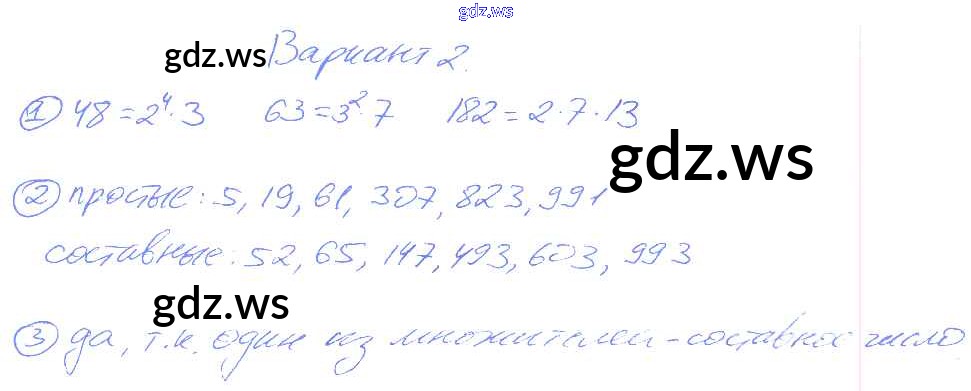 gdz.ws
gdz.ws Вариант 2.
① 48 = 2⁴·3 63 = 3²·7 182 = 2·7·13
gdz.ws
② простые: 5, 19, 61, 307, 823, 991
составные: 52, 65, 147, 493, 603, 993
gdz.ws
③ да, т.к. один из множителей - составное число